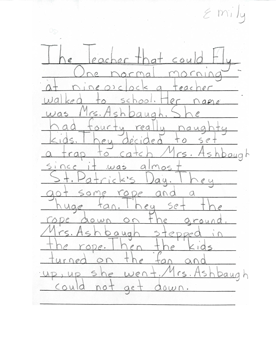 Emily
The Teacher that could Fly
One normal morning
at nine o'clock a teacher
walked to school. Her name
was Mrs. Ashbaugh. She
had fourty really naughty
kids. They decided to set
a trap to catch Mrs. Ashbaugh
since it was almost
St. Patrick's Day. They
got some rope and a
huge fan. They set the
rope down on the ground.
Mrs. Ashbaugh stepped in
the rope. Then the kids
turned on the fan and
up, up she went. Mrs. Ashbaugh
could not get down.